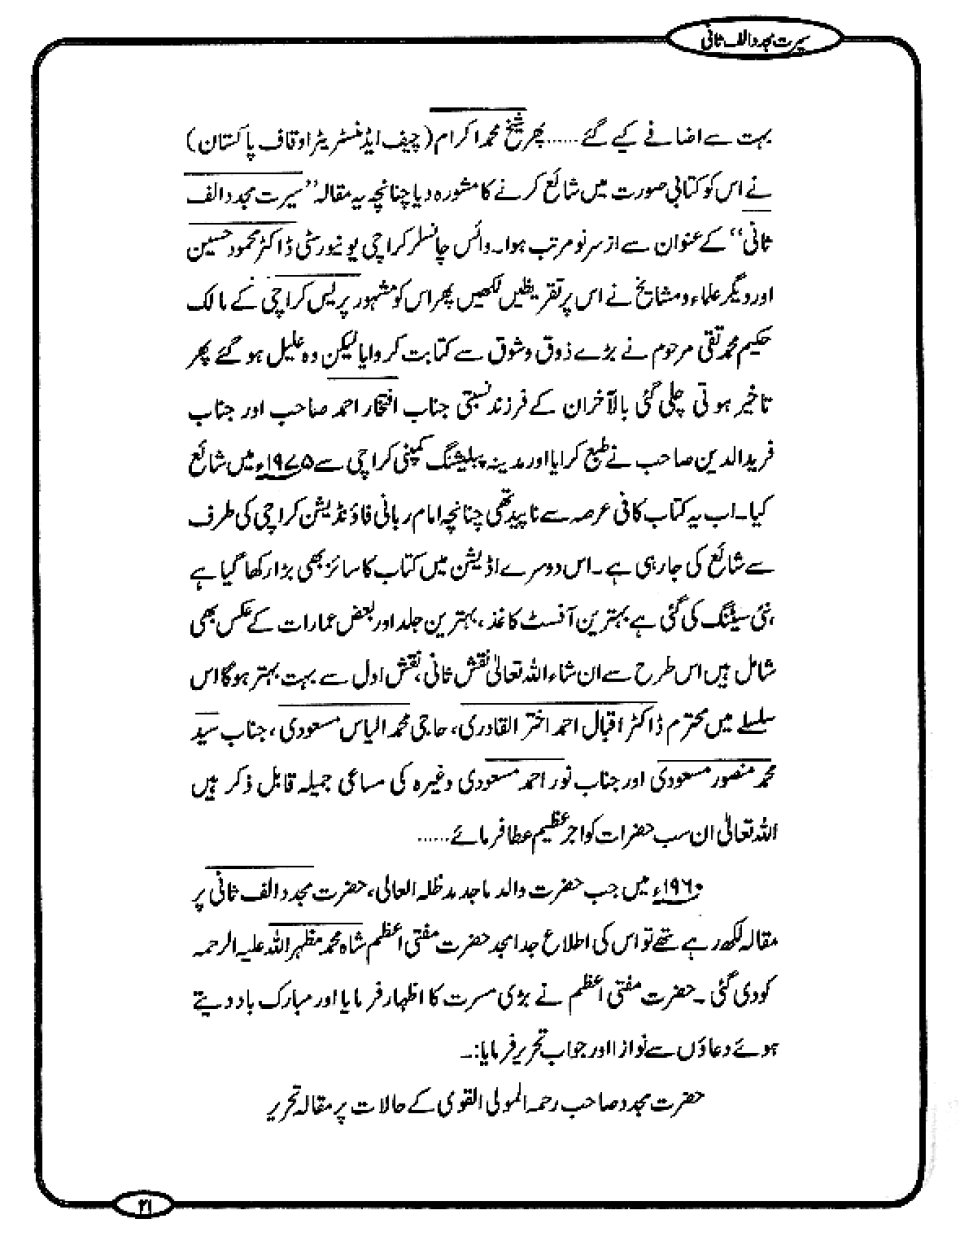 سیرت مجدد الف ثانی
بہت سے اضافے کیے گئے ...... پھر شیخ محمد اکرام (چیف ایڈمنسٹریٹر اوقاف پاکستان)
نے اس کو کتابی صورت میں شائع کرنے کا مشورہ دیا چنانچہ یہ مقالہ ”سیرت مجدد الف
ثانی“ کے عنوان سے از سر نو مرتب ہوا۔ وائس چانسلر کراچی یونیورسٹی ڈاکٹر محمود حسین
اور دیگر علماء و مشایخ نے اس پر تقریظیں لکھیں پھر اس کو مشہور پریس کراچی کے مالک
حکیم محمد تقی مرحوم نے بڑے ذوق و شوق سے کتابت کروایا لیکن وہ علیل ہو گئے پھر
تاخیر ہوتی چلی گئی بالآخر ان کے فرزند نسبتی جناب افتخار احمد صاحب اور جناب
فرید الدین صاحب نے طبع کرایا اور مدینہ پبلیشنگ کمپنی کراچی سے ۱۹۷۵ء میں شائع
کیا۔ اب یہ کتاب کافی عرصہ سے ناپید تھی چنانچہ امام ربانی فاؤنڈیشن کراچی کی طرف
سے شائع کی جارہی ہے۔ اس دوسرے اڈیشن میں کتاب کا سائز بھی بڑا رکھا گیا ہے
نئی سیٹنگ کی گئی ہے بہترین آفسٹ کاغذ، بہترین جلد اور بعض عمارات کے عکس بھی
شامل ہیں اس طرح سے ان شاء اللہ تعالیٰ نقش ثانی، نقش اول سے بہت بہتر ہوگا اس
سلسلے میں محترم ڈاکٹر اقبال احمد اختر القادری، حاجی محمد الیاس مسعودی، جناب سید
محمد منصور مسعودی اور جناب نور احمد مسعودی وغیرہ کی مساعی جمیلہ قابل ذکر ہیں
اللہ تعالیٰ ان سب حضرات کو اجر عظیم عطا فرمائے ......
۱۹۶۰ء میں جب حضرت والد ماجد مدظلہ العالی، حضرت مجدد الف ثانی پر
مقالہ لکھ رہے تھے تو اس کی اطلاع جد امجد حضرت مفتی اعظم شاہ محمد مظہر اللہ علیہ الرحمہ
کو دی گئی۔ حضرت مفتی اعظم نے بڑی مسرت کا اظہار فرمایا اور مبارک باد دیتے
ہوئے دعاؤں سے نوازا اور جواب تحریر فرمایا:۔
حضرت مجدد صاحب رحمہ المولی القوی کے حالات پر مقالہ تحریر
۲۱